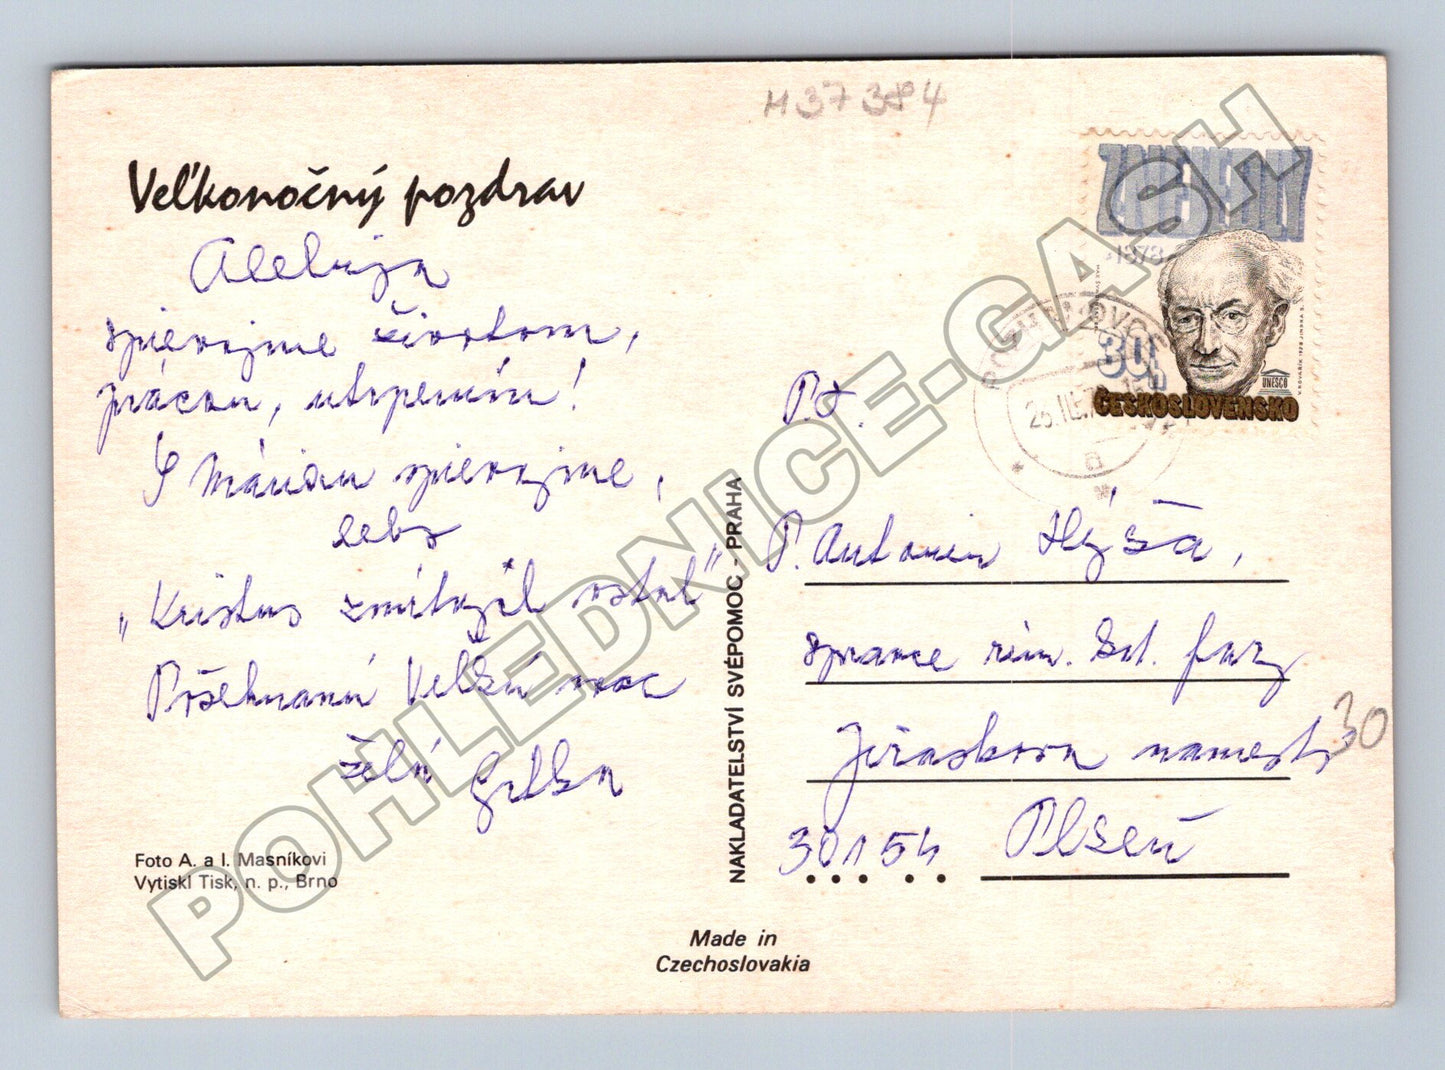 H37384
Veľkonočný pozdrav
Aleluja
spievajme životom,
prácou, utrpením!
S Máriou spievajme,
lebo
„Kristus zmŕtvych vstal"
Požehnanú Veľkú noc
želá
Foto A. a I. Masníkovi
Vytiskl Tisk, n. p., Brno
NAKLADATELSTVÍ SVÉPOMOC - PRAHA
Made in
Czechoslovakia
ZD. NEJEDLÝ
1878
30h
UNESCO
ČESKOSLOVENSKO
P. Antonin Hýža,
správce rím. kat. fary
Jiráskovo namest.
30
30154 Plzeň
POHLEDNICE-GASH